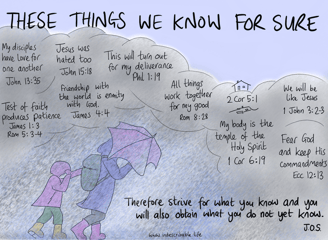 THESE THINGS WE KNOW FOR SURE
My disciples
have love for
one another
John 13:35
Jesus was
hated too
John 15:18
This will turn out
for my deliverance
Phil 1:19
Friendship with
the world is enmity
with God.
James 4:4
All things
work together
for my good
Rom 8:28
2 Cor 5:1
We will be
like Jesus
1 John 3:2-3
Test of faith
produces patience
James 1:3
Rom 5:3-4
My body is the
temple of the
Holy Spirit
1 Cor 6:19
Fear God
and keep His
commandments
Ecc 12:13
Therefore strive for what you know and you
will also obtain what you do not yet know.
J.O.S.